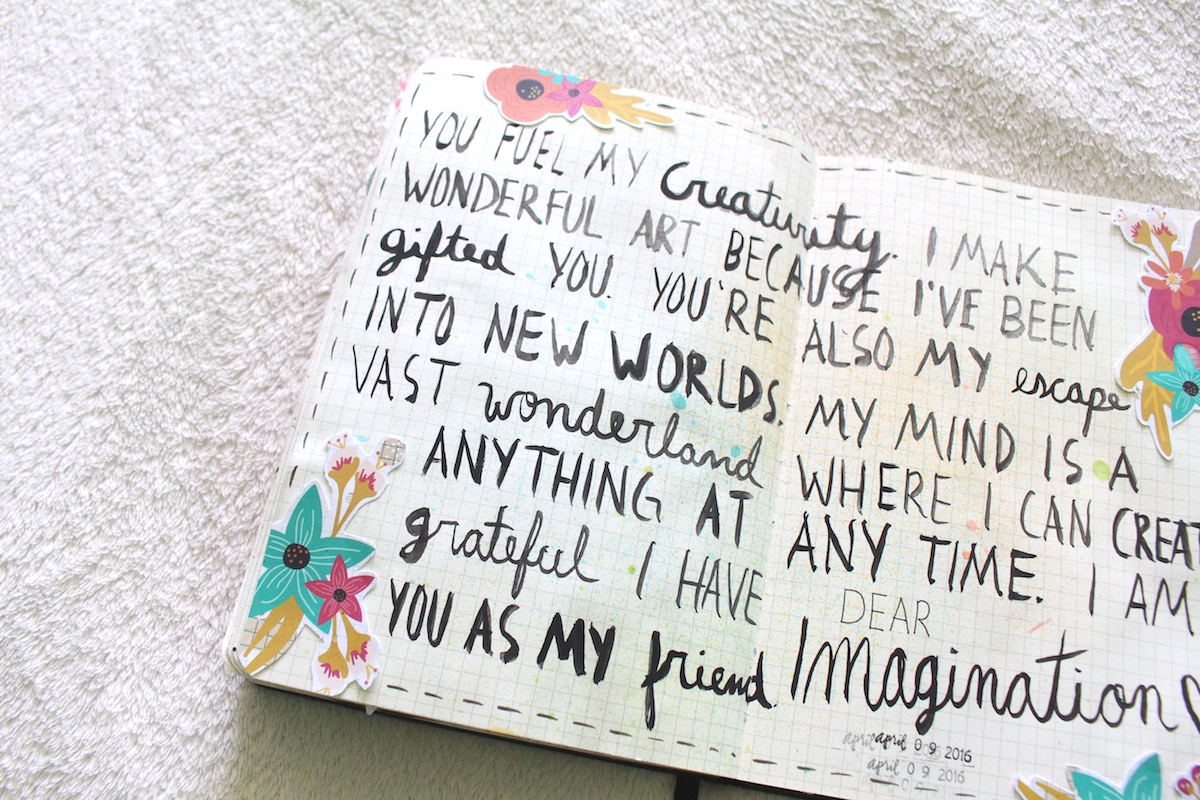 YOU FUEL MY Creativity. I MAKE
WONDERFUL ART BECAUSE I'VE BEEN
gifted YOU. YOU'RE ALSO MY escape
INTO NEW WORLDS. MY MIND IS A
VAST wonderland WHERE I CAN CREAT
ANYTHING AT ANY TIME. I AM
grateful I HAVE DEAR
YOU AS MY friend. Imagination
april april 09 2016
april 09 2016